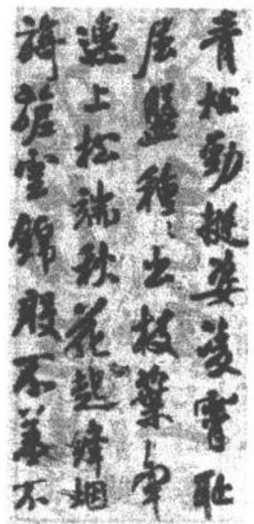 青松勁挺姿凌霄耻
屈盤種〻出枝葉牽
連上松端秋花起絳烟
旖旎雲錦殷不羞不